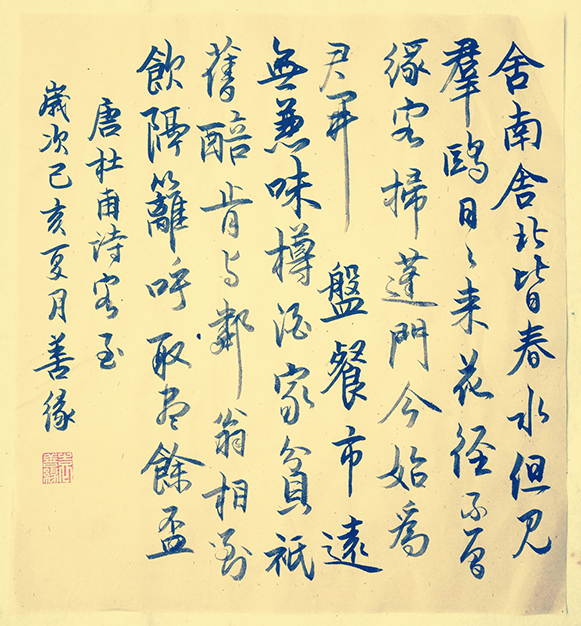 舍南舍北皆春水但見
羣鷗日〻来花径不曾
緣客掃蓬門今始爲
君開 盤餐市遠
無兼味樽酒家貧衹
舊醅肯与鄰翁相對
飲隔籬呼取盡餘盃
唐杜甫詩客至
歲次己亥夏月善緣